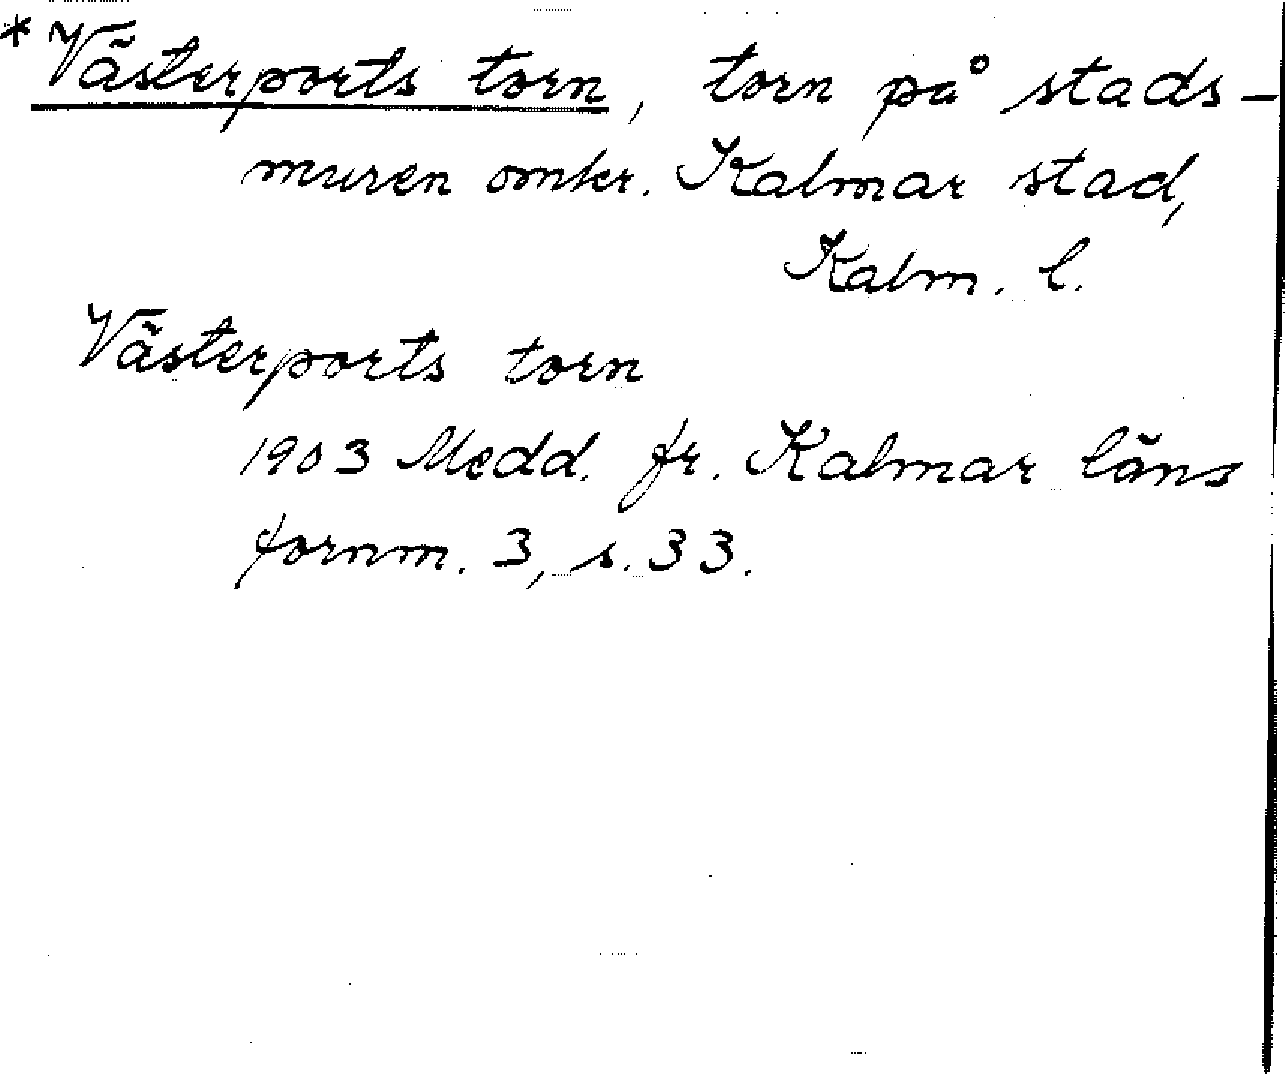 *Västerports torn, torn på stads-
muren omkr. Kalmar stad,
Kalm. l.
Västerports torn
1903 Medd. fr. Kalmar läns
fornm. 3, s. 33.